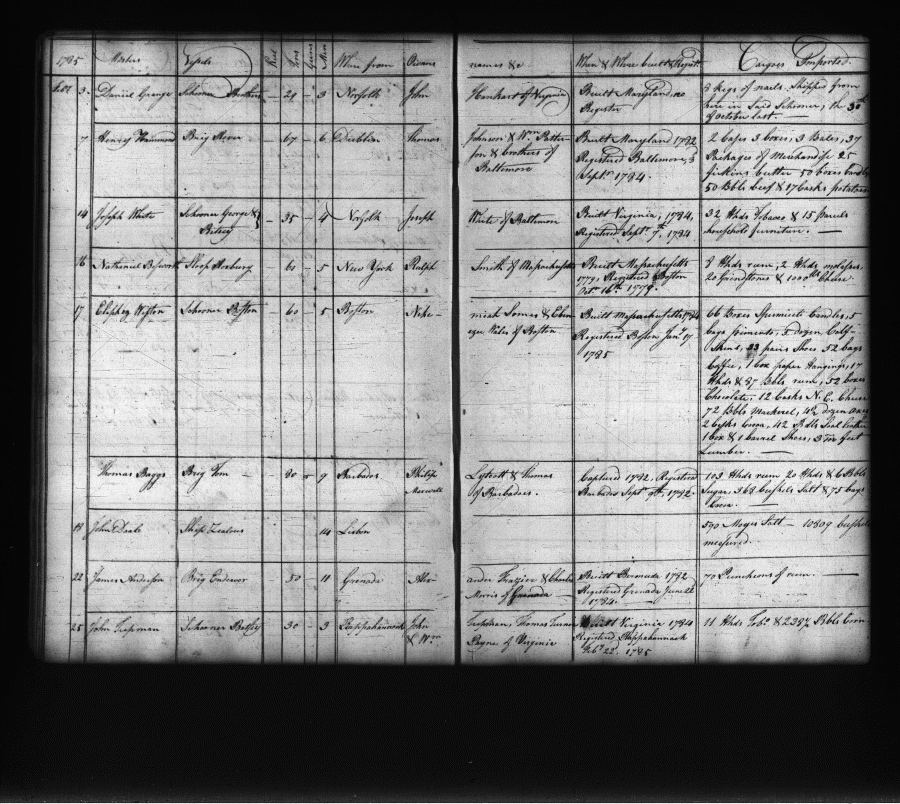 1785 Masters Vessels Tons Guns Men Where from Owners names &c When & Where built & Regist Cargoes Imported
3 Daniel Grange Schooner 24 3 Norfolk John of Virginia Built Maryland no 3 Kegs of nails. Shipped from
Register here in Said Schooner, the 30th
of October last.
7 Henry Hammond Brig 67 6 Dublin Thomas Johnson & Wm Patter- Built Maryland 1782 2 3 boxes, 3 Bales, 37
son & brothers of Registered Baltimore, 3 Packages of Merchandise 25
Baltimore Septr 1784. firkins butter 50 boxes
50 Bbls beef & 17 Casks potatoes
14 Joseph White Schooner George & 35 4 Norfolk Joseph White of Baltimore Built Virginia, 1784, 32 Hhds Tobacco & 15 parcels
Betsey Registered Septr 7th, 1784 household furniture.
16 Nathaniel Sloop 60 5 New York Ralph Smith of Massachusetts Built Massachusetts 8 Hhds rum, 2 Hhds molasses,
1779, Registered Boston 20 Grindstones & Cheese
Octr 16th 1778.
17 Schooner Boston 60 5 Boston Nehe- miah & Eben- Built Massachusetts 1784 66 Boxes Spermaceti Candles, 5
ezer Wales of Boston Registered Boston Jany 17 bags pimento, 5 dozen Calf-
1785 Skins, 33 pairs Shoes 52 bags
Coffee, 1 box paper Hangings, 17
Hhds & 87 Bbls rum, 52 boxes
Chocolate, 12 Casks N.E. Cheese
72 Bbls Mackerel, dozen axes
2 Casks Cocoa, 42 Seal leather
1 box & 1 barrel Shoes, feet
Lumber.
Thomas Baggs Brig Tom 80 9 Barbados Philip & Thomas Captured 1782, Registered 103 Hhds rum 20 Hhds & 6 Bbls
Maxwell of Barbadoes. Barbados Sept 9th, 1782. Sugar 368 bushels Salt & 75 bags
18 John Deale Ship Zealous 14 Lisbon 590 Moyes Salt 10809 bushels
measured.
22 James Anderson Brig Endeavor 50 11 Grenada Alex- ander Frazier & Charles Built Bermuda 1782 70 Puncheons of rum.
Morris of Grenada Registered Grenada June 22
1784.
25 John Schooner Betsey 30 3 Rappahannock John Thomas Turner Built Virginia 1784 11 Hhds Tobo & Bbls
& Wm Payne of Virginia Registered Rappahannock
Feby 22d 1785